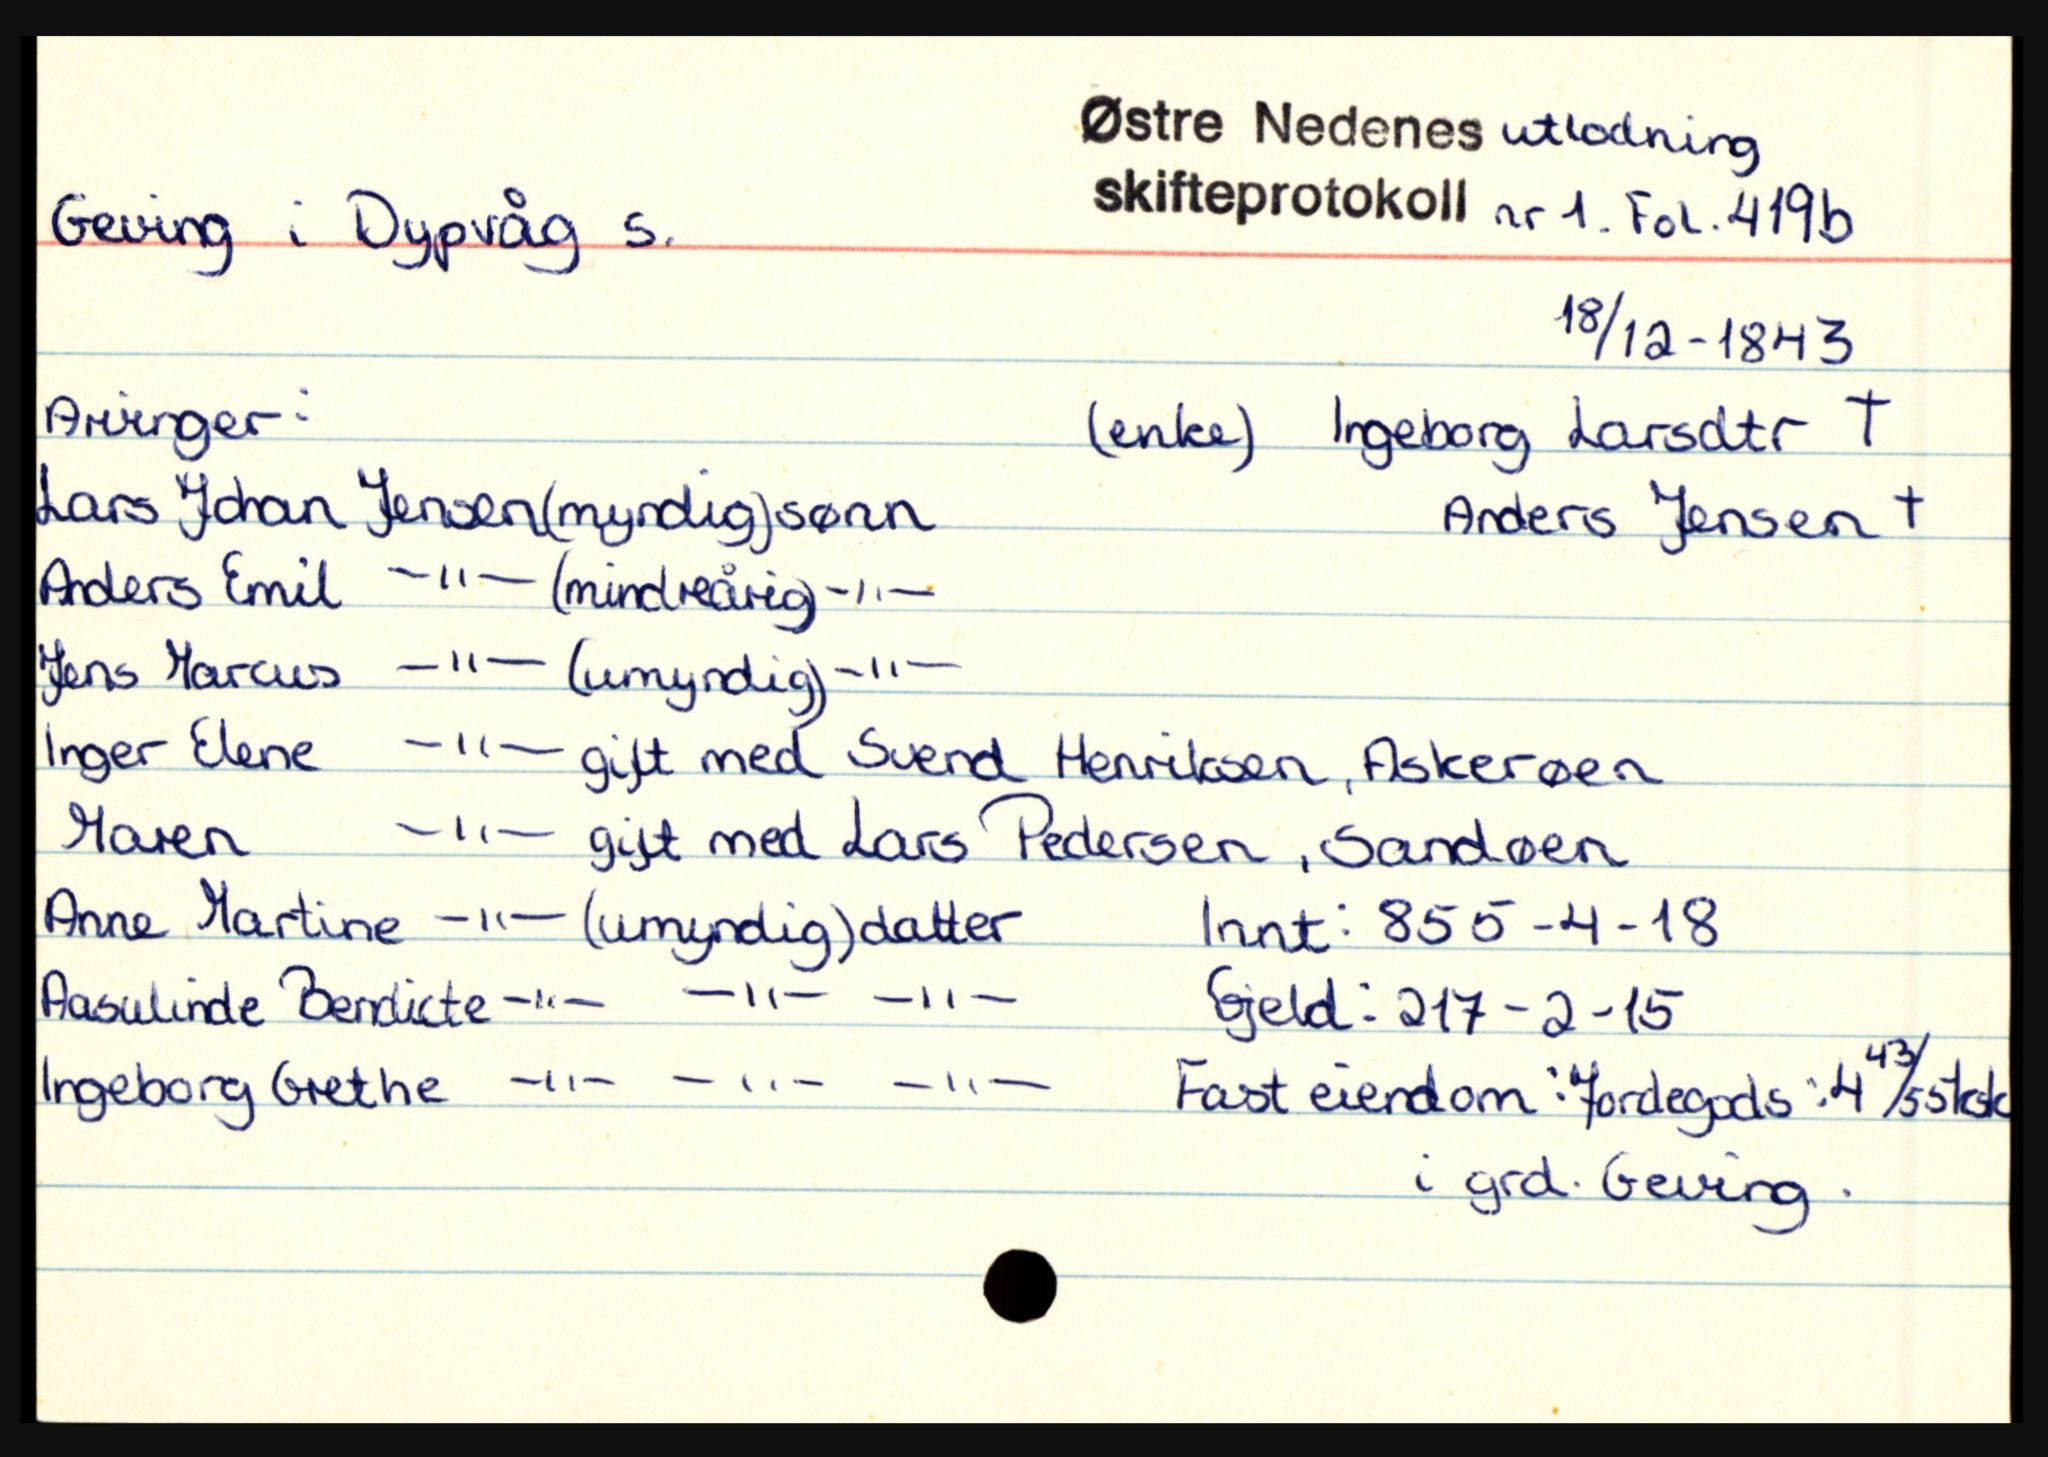 Østre Nedenes utlodning
skifteprotokoll nr 1. Fol. 419b
Geving i Dypvåg s.
18/12-1843
Arvinger:
(enke) Ingeborg Larsdtr †
Lars Johan Jensen (myndig) sønn
Anders Jensen †
Anders Emil -"- (mindreårig) -"-
Jens Marcus -"- (umyndig) -"-
Inger Elene -"- gift med Svend Henriksen, Askerøen
Maren -"- gift med Lars Pedersen, Sandøen
Anne Martine -"- (umyndig) datter Innt: 855-4-18
Aasulinde Bendicte -"- -"- -"- Gjeld: 217-2-15
Ingeborg Grethe -"- -"- -"- Fast eiendom: Jordegods: 4 43/55 sksk
i grd. Geving.